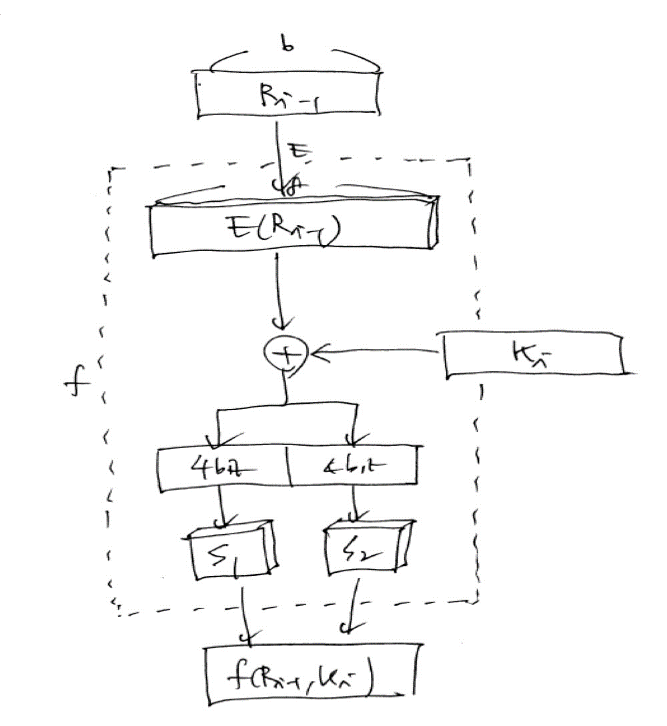 b
R_{i-1}
E
8
E(R_{i-1})
+
K_i
f
4bit 4bit
S_1 S_2
f(R_{i-1}, K_i)